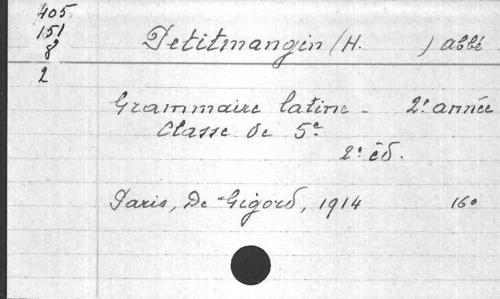 405
151
8
2
Petitmangin (H. ) abbé
Grammaire latine - 2e année
Classe de 5e
2e éd.
Paris, De Gigord, 1914 16o